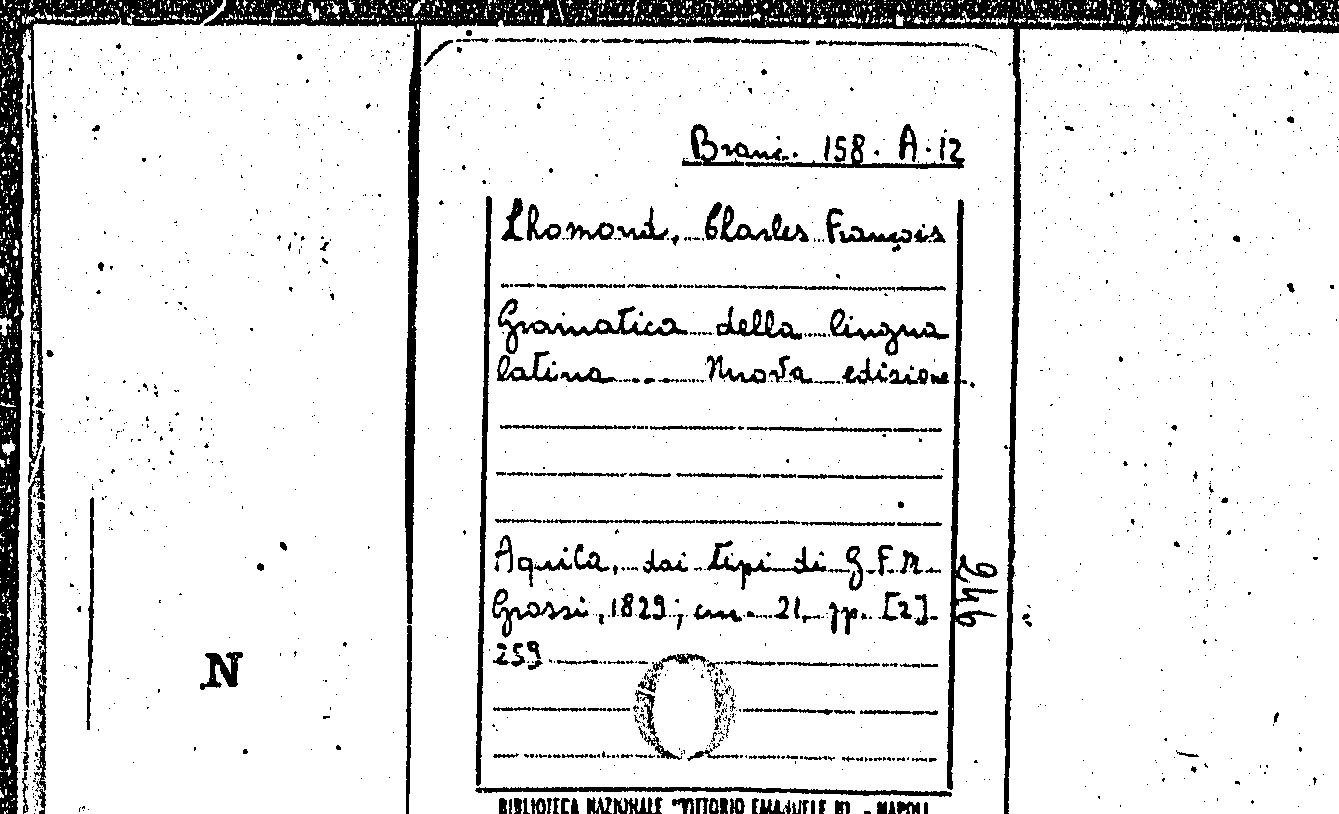 Branc. 158. A. 12
Lhomond, Charles François
Gramatica della lingua
latina .... Nuova edizione.
Aquila, dai tipi di G.F.M.
Grossi, 1829; cm. 21, pp. [2].
259
246
N
BIBLIOTECA NAZIONALE "VITTORIO EMANUELE III" - NAPOLI